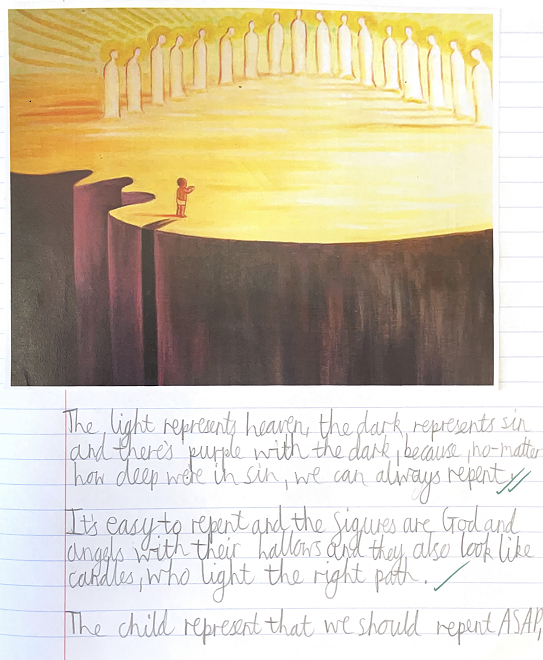 The light represents heaven, the dark represents sin
and there's purple with the dark, because, no-matter
how deep we're in sin, we can always repent.
It's easy to repent and the figures are God and
angels with their hallows and they also look like
candles, who light the right path.
The child represent that we should repent ASAP,